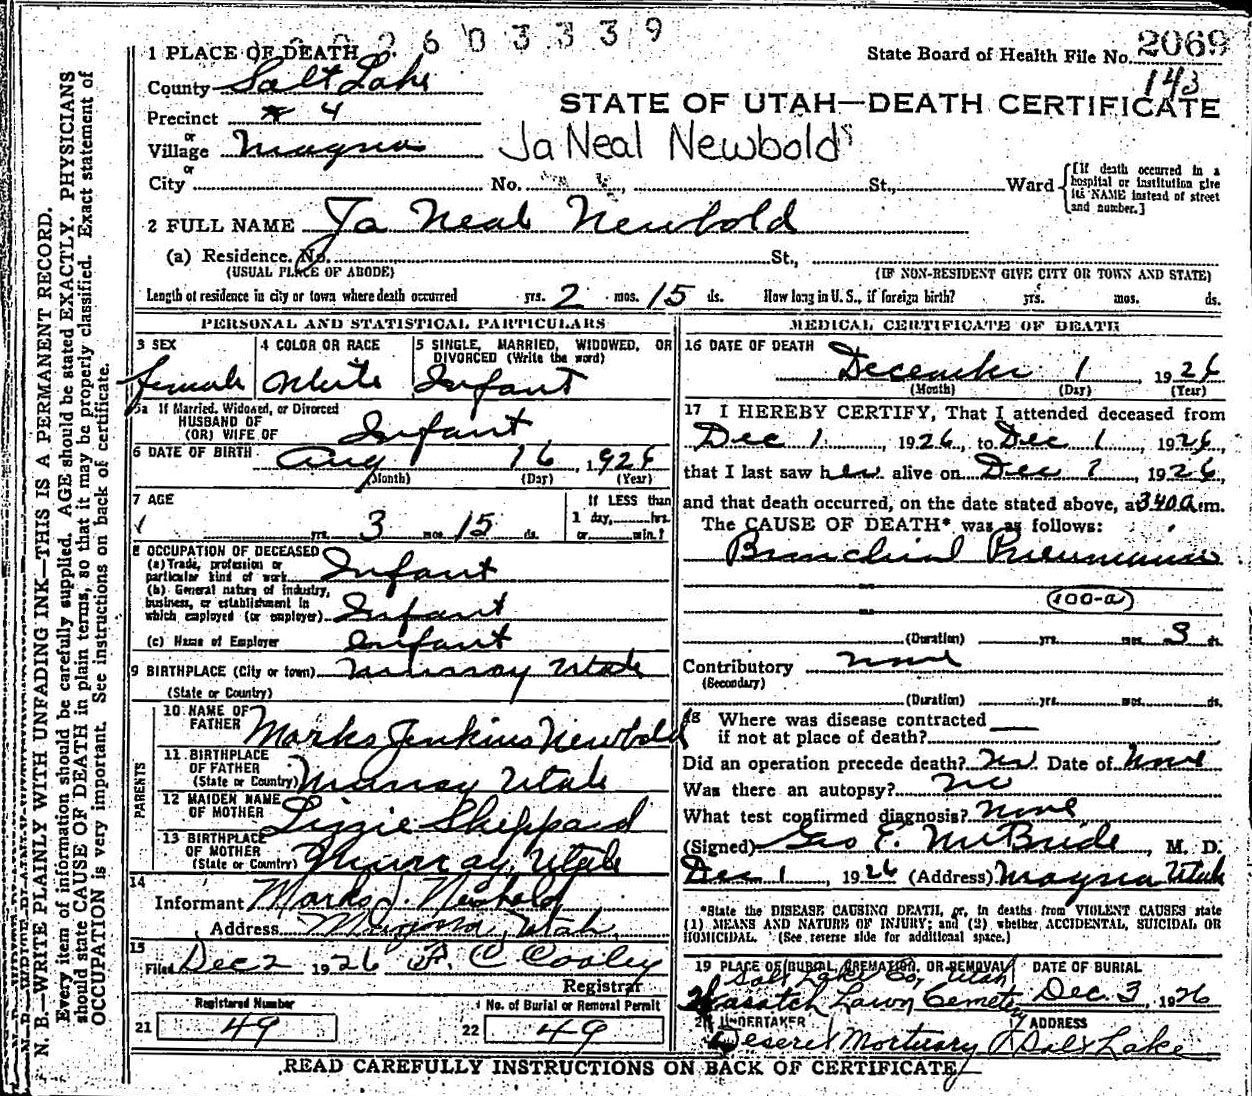 2603339
1 PLACE OF DEATH
State Board of Health File No. 2069
143
County Salt Lake
STATE OF UTAH—DEATH CERTIFICATE
Precinct # 4
or
Village Magna
Ja Neal Newbold
or
City No. St., Ward
[If death occurred in a hospital or institution give its NAME instead of street and number.]
2 FULL NAME Ja Neal Newbold
(a) Residence. No. St.,
(USUAL PLACE OF ABODE) (IF NON-RESIDENT GIVE CITY OR TOWN AND STATE)
Length of residence in city or town where death occurred yrs. 2 mos. 15 ds. How long in U. S., if foreign birth? yrs. mos. ds.
PERSONAL AND STATISTICAL PARTICULARS
3 SEX 4 COLOR OR RACE 5 SINGLE, MARRIED, WIDOWED, OR DIVORCED (Write the word)
female White Infant
5a If Married, Widowed, or Divorced
HUSBAND OF
(OR) WIFE OF Infant
6 DATE OF BIRTH Aug 16, 1926
(Month) (Day) (Year)
7 AGE If LESS than
1 day, hrs.
yrs. 3 mos. 15 ds. or min.?
8 OCCUPATION OF DECEASED
(a) Trade, profession or particular kind of work Infant
(b) General nature of industry, business, or establishment in which employed (or employer) Infant
(c) Name of Employer Infant
9 BIRTHPLACE (City or town) Murray Utah
(State or Country)
PARENTS
10 NAME OF FATHER Marks Jenkins Newbold
11 BIRTHPLACE OF FATHER (State or Country) Murray Utah
12 MAIDEN NAME OF MOTHER Lizzie Sheppard
13 BIRTHPLACE OF MOTHER (State or Country) Murray, Utah
14
Informant Marks J. Newbold
Address Magna, Utah
15
Filed Dec 2 1926 F. C. Cooley
Registrar
Registered Number No. of Burial or Removal Permit
21 49 22 49
MEDICAL CERTIFICATE OF DEATH
16 DATE OF DEATH
December 1, 1926
(Month) (Day) (Year)
17 I HEREBY CERTIFY, That I attended deceased from
Dec 1, 1926, to Dec 1 1926
that I last saw her alive on Dec 1, 1926,
and that death occurred, on the date stated above, at 340 a.m.
The CAUSE OF DEATH* was as follows:
Bronchial Pneumonia
100-a
(Duration) yrs. mos. 3 ds.
Contributory none
(Secondary)
(Duration) yrs. mos. ds.
18 Where was disease contracted
if not at place of death?
Did an operation precede death? no Date of none
Was there an autopsy? no
What test confirmed diagnosis? none
(Signed) Geo E. McBride, M. D.
Dec 1, 1926 (Address) Magna Utah
*State the DISEASE CAUSING DEATH, or, in deaths from VIOLENT CAUSES state
(1) MEANS AND NATURE OF INJURY; and (2) whether ACCIDENTAL, SUICIDAL OR
HOMICIDAL. (See reverse side for additional space.)
19 PLACE OF BURIAL, CREMATION, OR REMOVAL DATE OF BURIAL
Salt Lake Co, Utah
Wasatch Lawn Cemetery Dec. 3, 1926
20 UNDERTAKER ADDRESS
Deseret Mortuary Salt Lake
READ CAREFULLY INSTRUCTIONS ON BACK OF CERTIFICATE
N. B.—WRITE PLAINLY WITH UNFADING INK—THIS IS A PERMANENT RECORD.
Every item of information should be carefully supplied. AGE should be stated EXACTLY. PHYSICIANS
should state CAUSE OF DEATH in plain terms, so that it may be properly classified. Exact statement of
OCCUPATION is very important. See instructions on back of certificate.